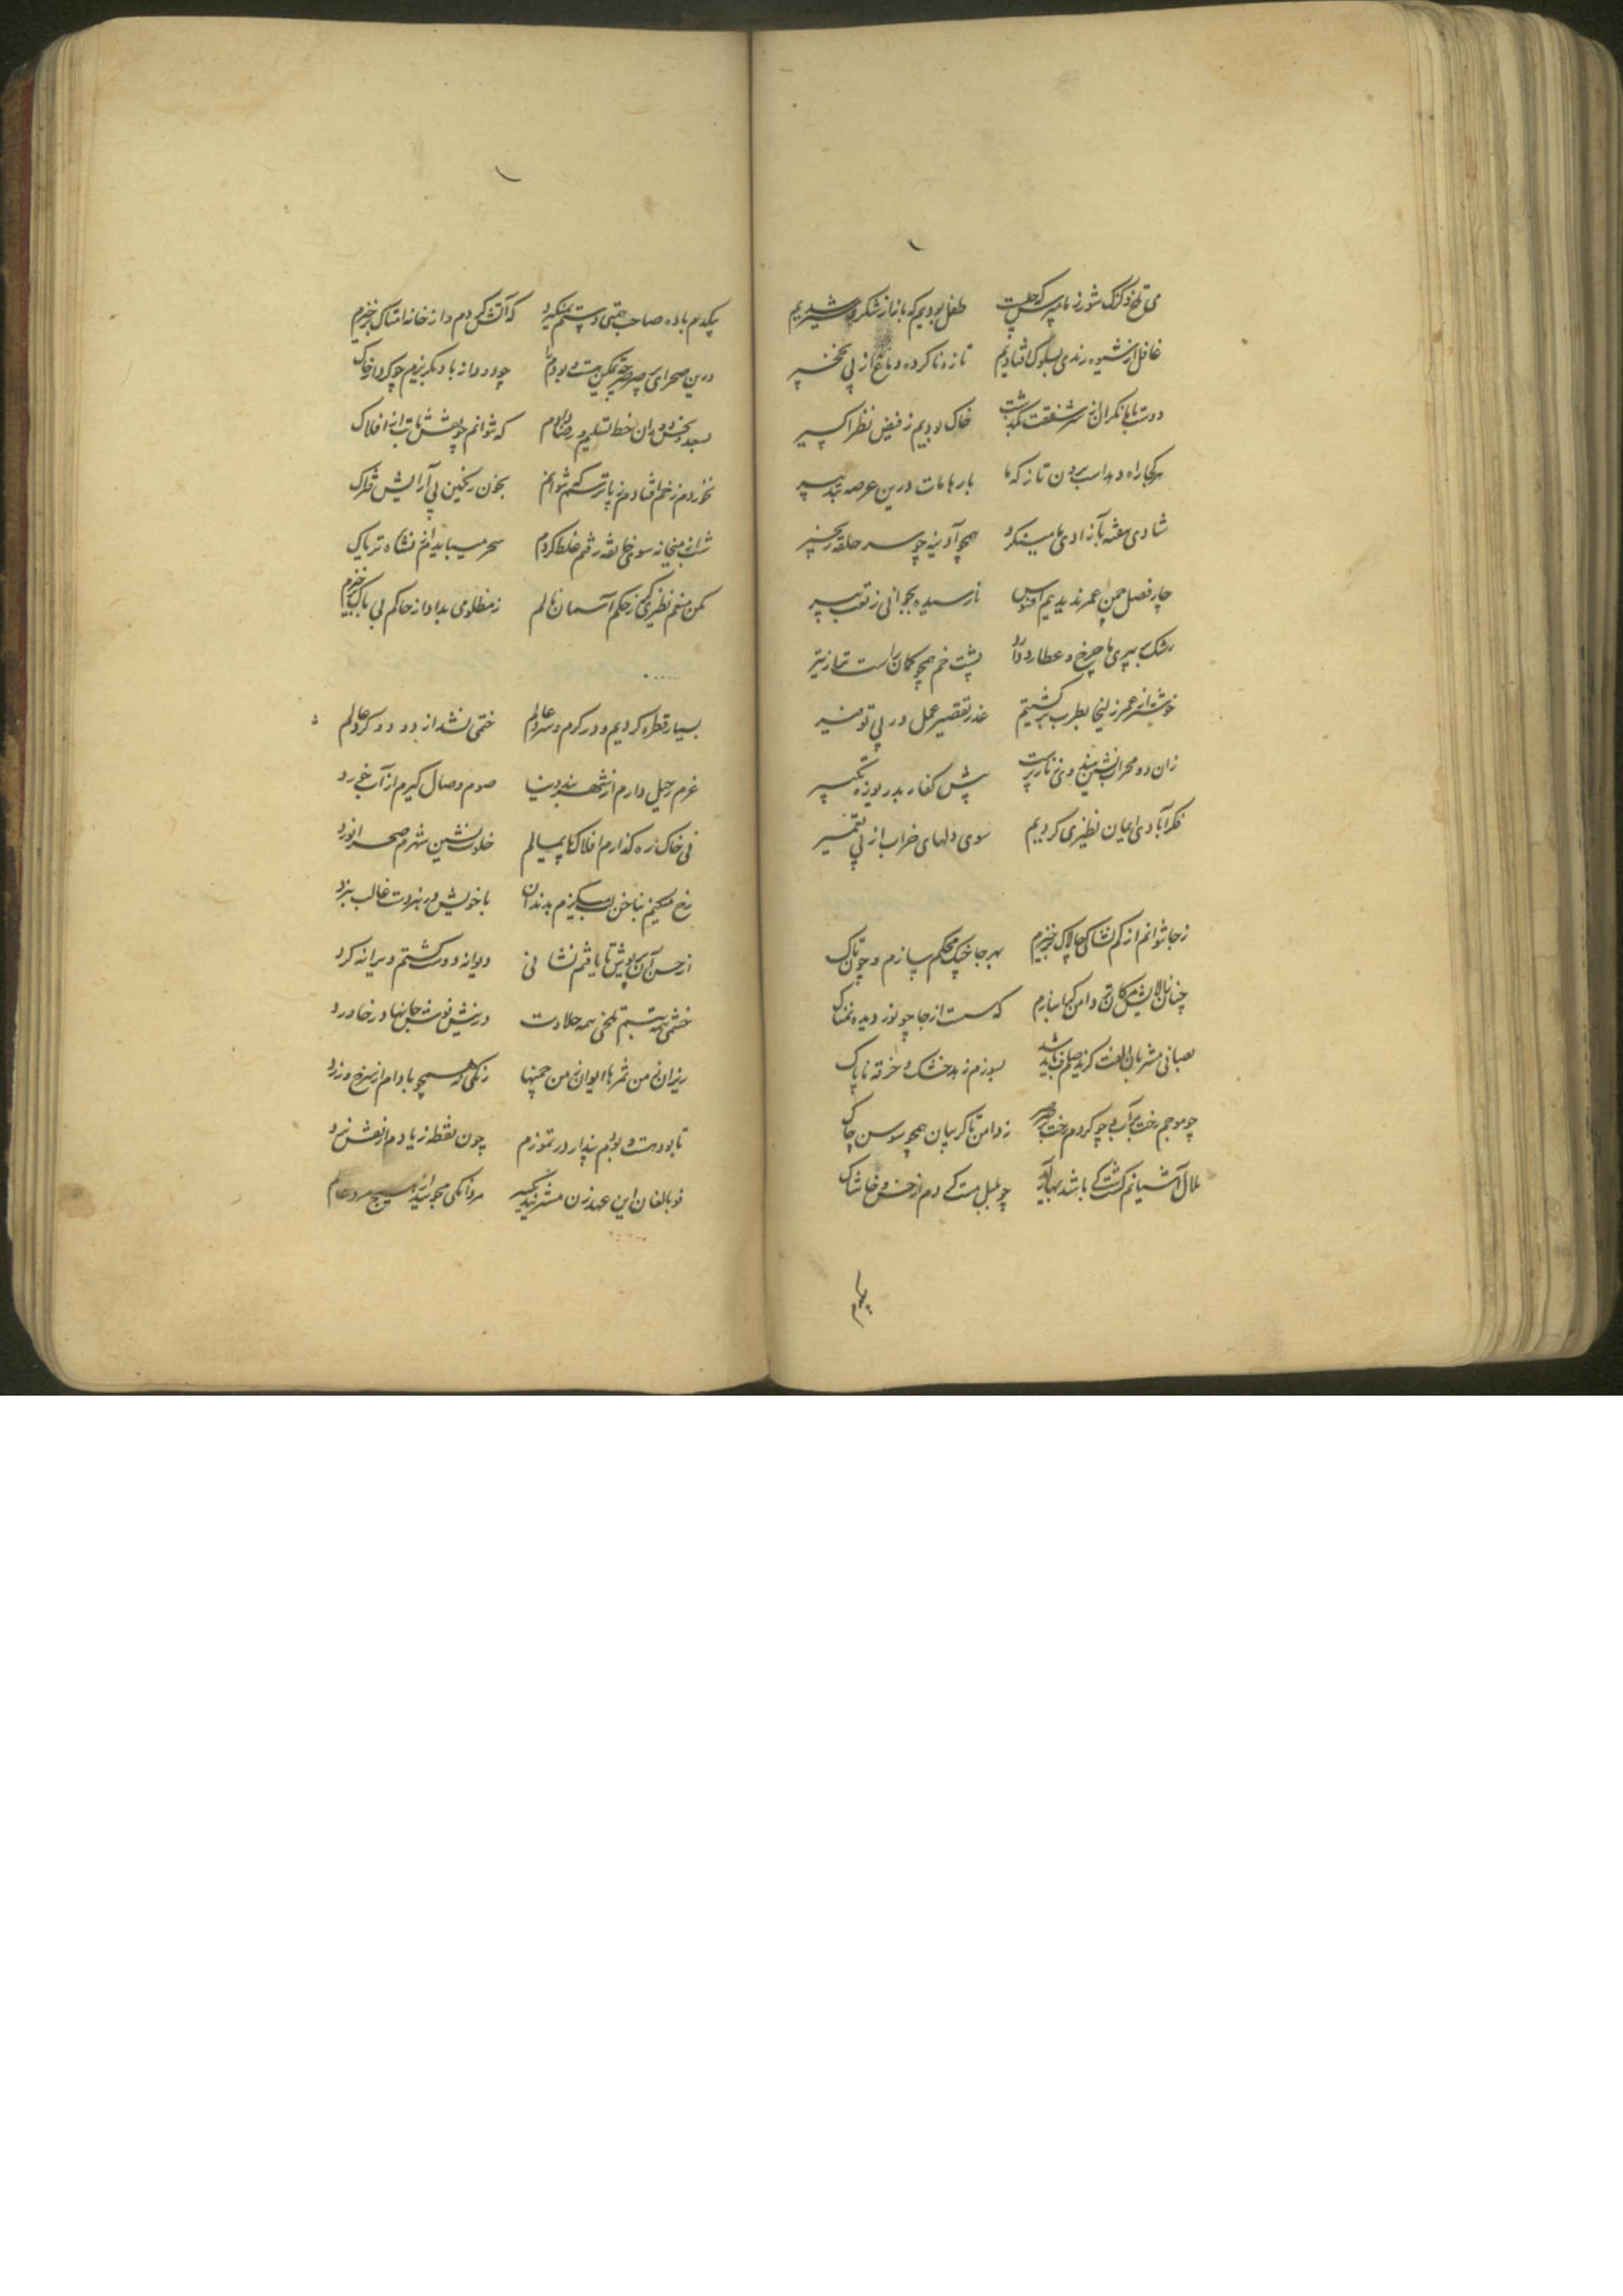 می تلخ و گزک شور ز ما پرس که چیست طفل بودیم که باز از شکر و شیر شدیم
غافل از شیوه رندی بسلوک افتادیم تازه ناکرده دماغ از پی نخچیر
دوست با ما نکران از سر شفقت بگذشت خاک بودیم ز فیض نظر اکسیر
هر کجا راه دهد اسب بر آن تاز که ما بارها مات درین عرصه بتدبیر
شادی هفته بآزادی ما مینکرد همچو آدینه چو سر حلقه زنجیر
چار فصل چمن عمر ندیدیم افسوس نارسیده بجوانی ز تعب پیر
رشک بر پیری ما چرخ و عطارد دارد پشت خم همچو کمان راست تر از تیر
خوشتر از عمر زلیخا بطرب برگشتیم عذر تقصیر عمل در پی توفیر
زان دو محراب نشین هندوی زنار پرست پیش کفار بدریوزه تکبیر
فکر آبادی ایمان نظیری کردیم سوی دلهای خراب از پی تعمیر
ز جا نتوانم از کم نشأکی چالاک برخیزم بهر جا خیک محکم سازم و چون تاک
چنان ز الایش مکان تر دامن کیها بیازارم که مست از جا چو نور دیده نمناک
بصبانی مشربان الفت گزیدم صلح می باید بسوزم زهد خشک و خرقه ناپاک
چو موجم رخت بر آب و چو کردم رخت بر صرصر ز دامن تا گریبان همچو سوسن چاک
ملال آشیانم کشت کی باشد بهار آید چو بلبل مست کی دم از خس و خاشاک
یکدم
یکدم باده صاحب همتی دستم نمیگیرد که آتش کردم و از خانه امساک برخیزم
درین صحرای پر صرصر چه تمکین هست و بودم را چو دود از باد بگریزم چو گرد از خاک
بسعد و نحس دوران خط تسلیم و رضا دادم که نتوانم حریف نقش نه افلاک
نخوردم زخم افتادم ز پا ترسم که نتوانم بخون رنگین پی آرایش فتراک
شب از میخانه سوی خانقه رفتم غلط کردم سحر میباید از نشاه تریاک
مکن منعم نظیری گر ز حکم آسمان نالم ز مظلومی بداد از حاکم بی باک برخیزم
بسیار قطره کردیم در گرم و سرد عالم ختمی نشد از دو دور کرد عالم
عزم رحیل دارم از شهر بند دنیا صوم وصال گیرم از آب و خورد
نی خاک ره گذارم افلاک پایمالم خلوت نشین شهرم صحرا نورد
رخ میکنم بناخن لب میگزم بدندان با خویش در نبردست غالب نبرد
از حسن آن پریوش تا یافتم نشانی دیوانه دوست گشتم ویرانه گرد
خشمی همه تبسم تلخی همه حلاوت در نیش نوش جانها در خار ورد
ریزان ز من ثمرها ایوان ز من چمنها رنگی که همچو بادام از سرخ و زرد
تا بود هست و بودم بیدار در تموزم چون نقطه زیادم از نقش نرد
نو بالغان این عهد زن مشربند یکسر مردانگی مجوئید از هیچ مرد عالم